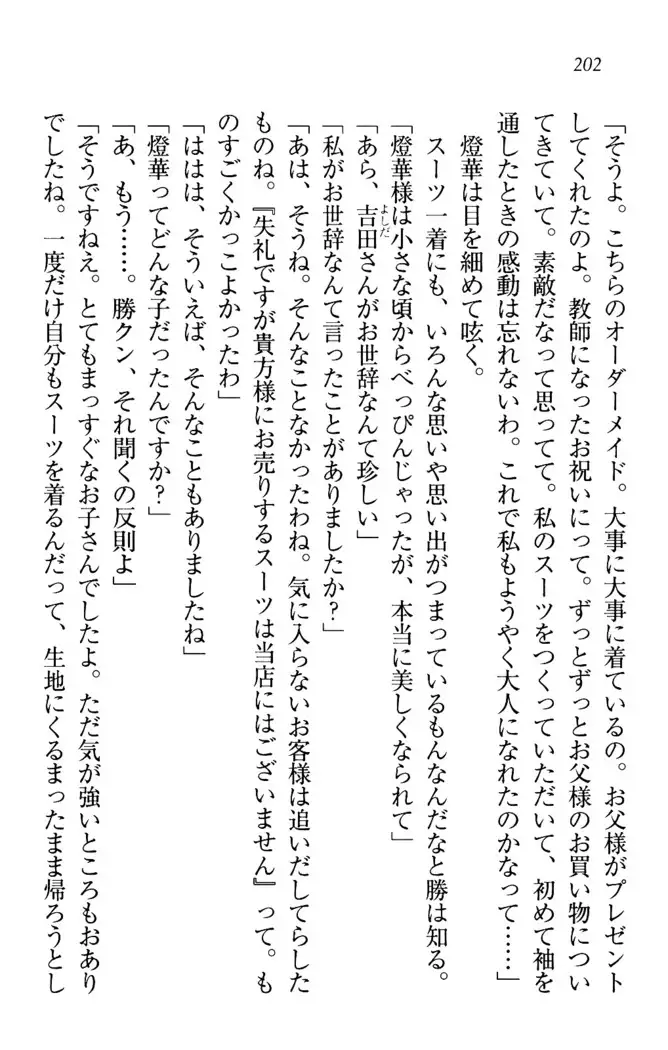 202
「そうよ。こちらのオーダーメイド。大事に大事に着ているの。お父様がプレゼント
してくれたのよ。教師になったお祝いにって。ずっとずっとお父様のお買い物につい
てきていて。素敵だなって思ってて。私のスーツをつくっていただいて、初めて袖を
通したときの感動は忘れないわ。これで私もようやく大人になれたのかなって……」
燈華は目を細めて呟く。
スーツ一着にも、いろんな思いや思い出がつまっているもんなんだなと勝は知る。
「燈華様は小さな頃からべっぴんじゃったが、本当に美しくなられて」
「あら、吉田さんがお世辞なんて珍しい」
よしだ
「私がお世辞なんて言ったことがありましたか？」
「あは、そうね。そんなことなかったわね。気に入らないお客様は追いだしてらした
ものね。『失礼ですが貴方様にお売りするスーツは当店にはございません』って。も
のすごくかっこよかったわ」
「ははは、そういえば、そんなこともありましたね」
「燈華ってどんな子だったんですか？」
「あ、もう……。勝クン、それ聞くの反則よ」
「そうですねえ。とてもまっすぐなお子さんでしたよ。ただ気が強いところもおあり
でしたね。一度だけ自分もスーツを着るんだって、生地にくるまったまま帰ろうとし